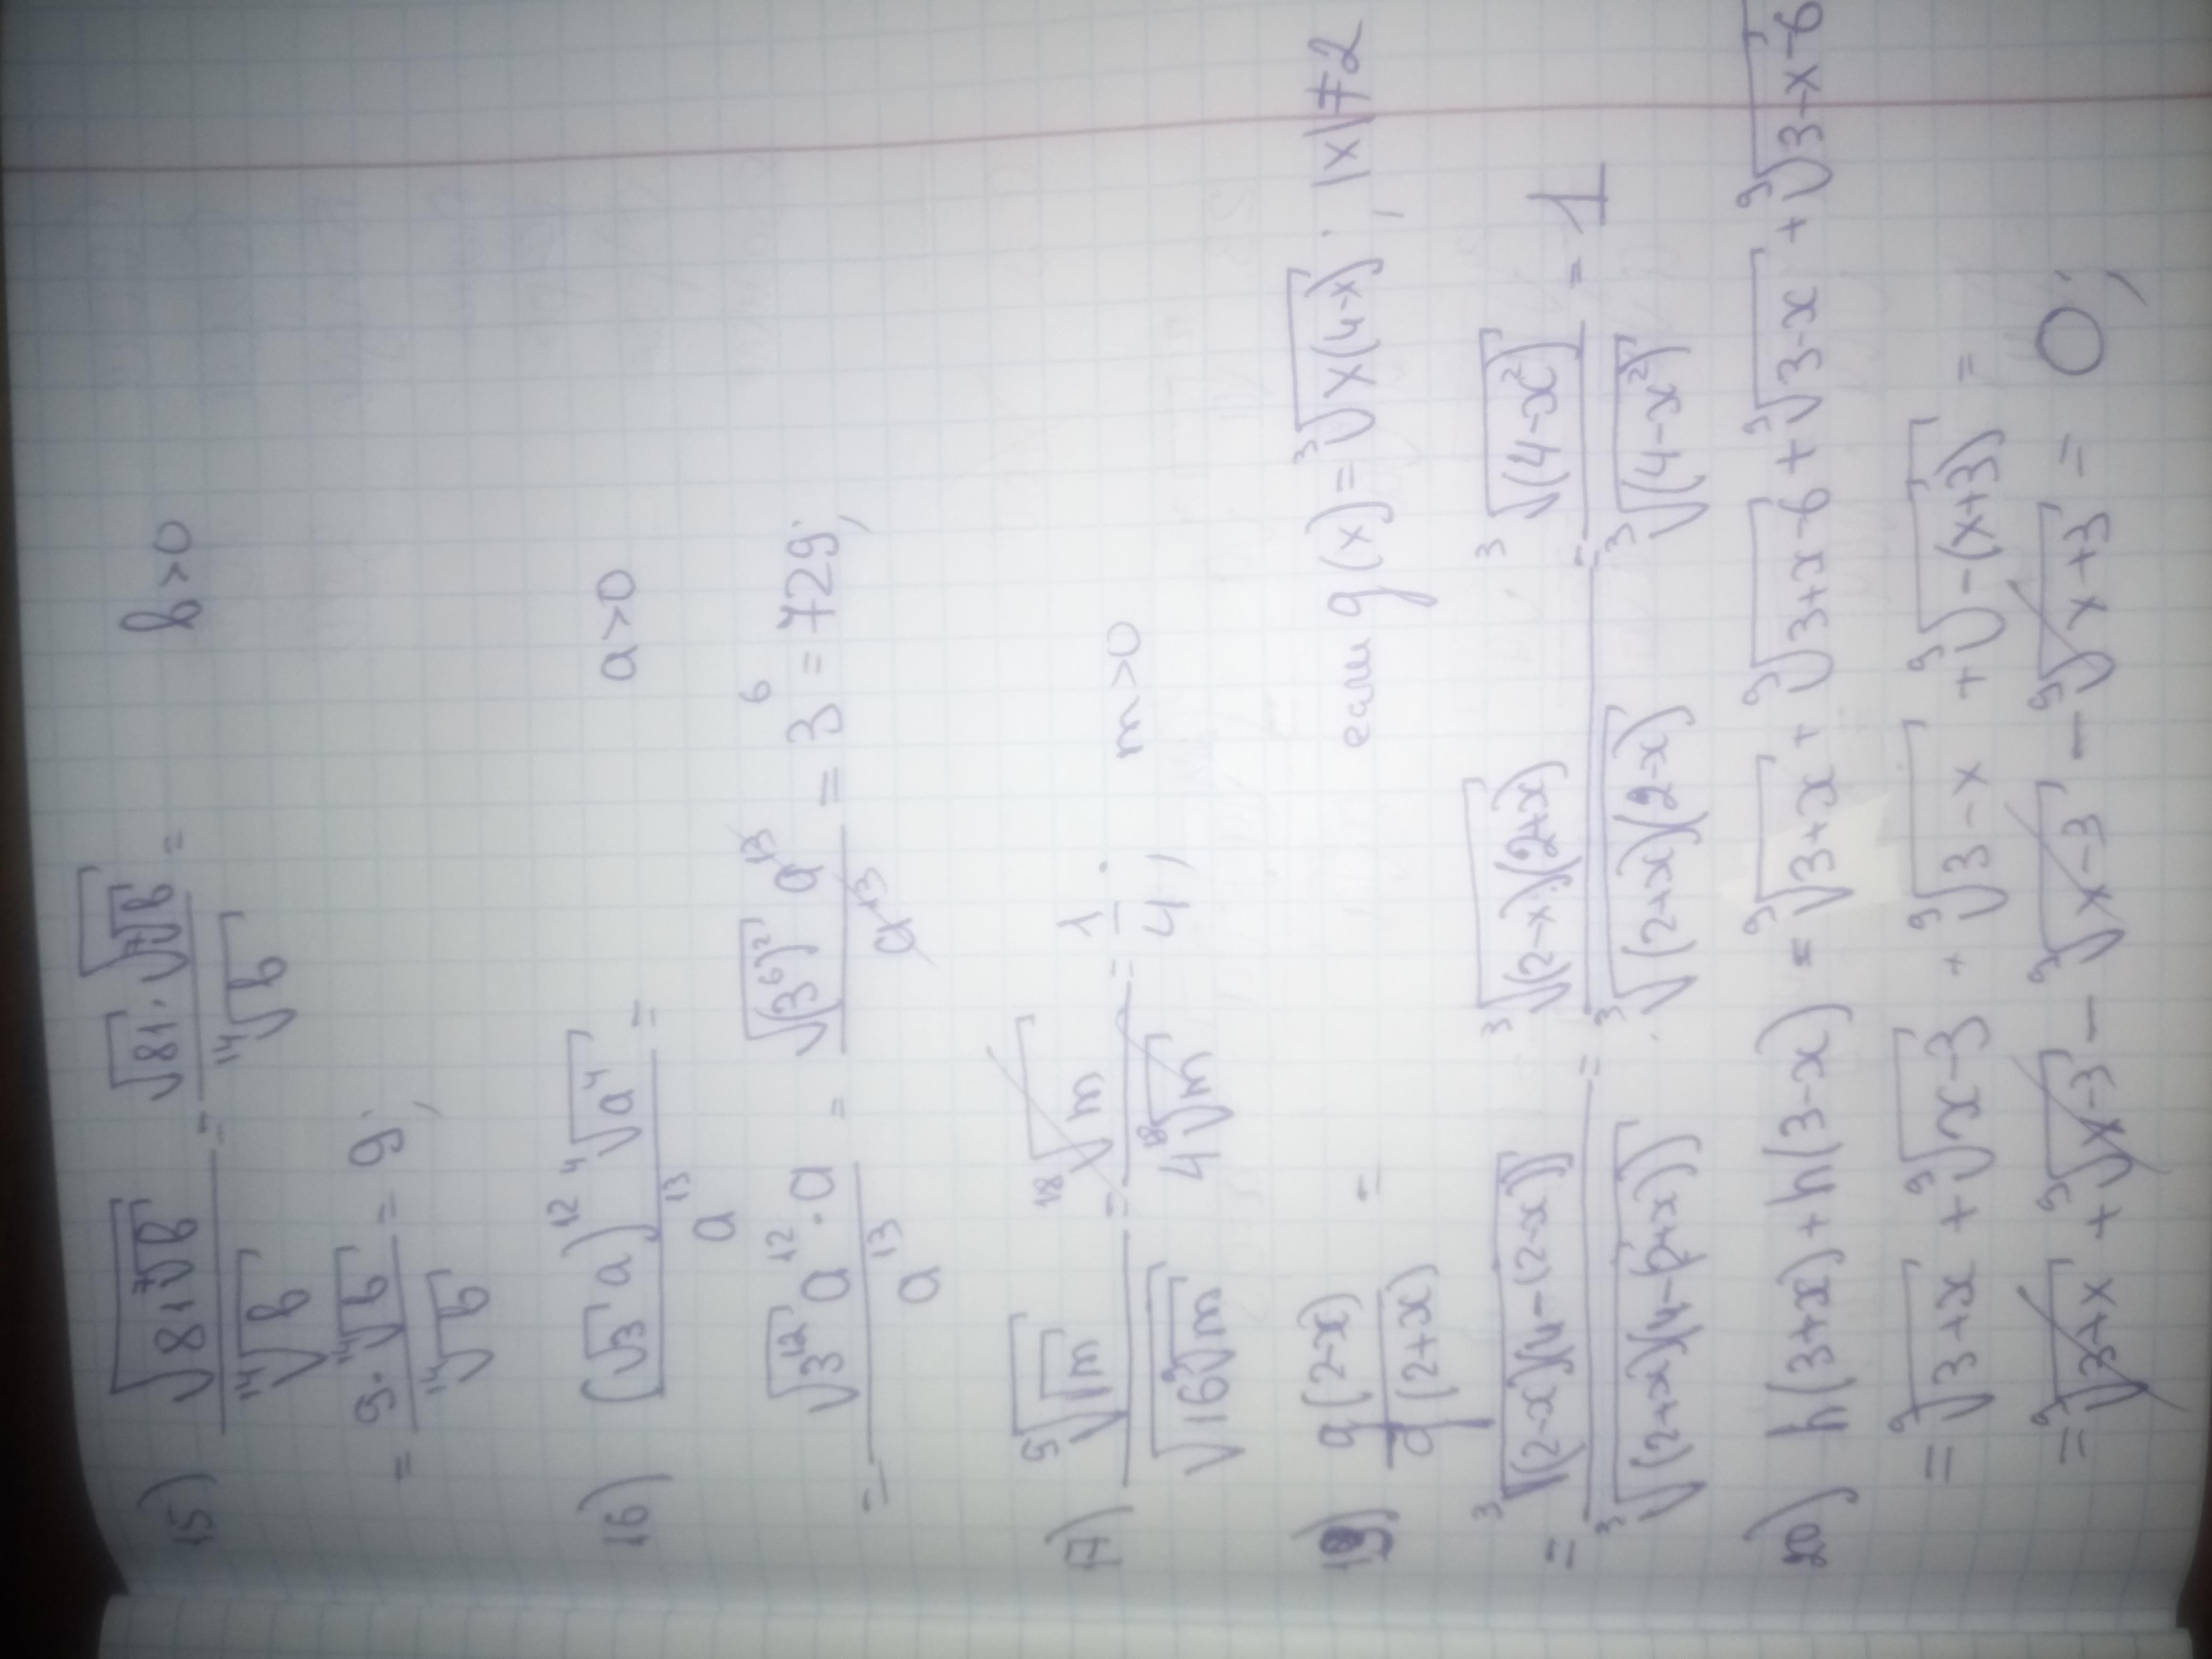 15) √(81 ⁷√b) / ¹⁴√b = √81 · √(⁷√b) / ¹⁴√b = b>0
= 9 · ¹⁴√b / ¹⁴√b = 9;
16) (√3 a)¹² ⁴√a⁴ / a¹³ = a>0
= √3¹² a¹² · a / a¹³ = √(3⁶)² a¹³ / a¹³ = 3⁶ = 729;
17) ⁹√(√m) / √(16 ⁹√m) = ¹⁸√m / 4 ¹⁸√m = 1/4; m>0
19) g(2-x) / g(2+x) = если g(x) = ³√x(4-x); |x|≠2
= ³√(2-x)(4-(2-x)) / ³√(2+x)(4-(2+x)) = ³√(2-x)(2+x) / ³√(2+x)(2-x) = ³√(4-x²) / ³√(4-x²) = 1
20) h(3+x)+h(3-x) = ⁹√3+x + ⁹√3+x-6 + ⁹√3-x + ⁹√3-x-6
= ⁹√3+x + ⁹√x-3 + ⁹√3-x + ⁹√-(x+3) =
= ⁹√3+x + ⁹√x-3 - ⁹√x-3 - ⁹√x+3 = 0;